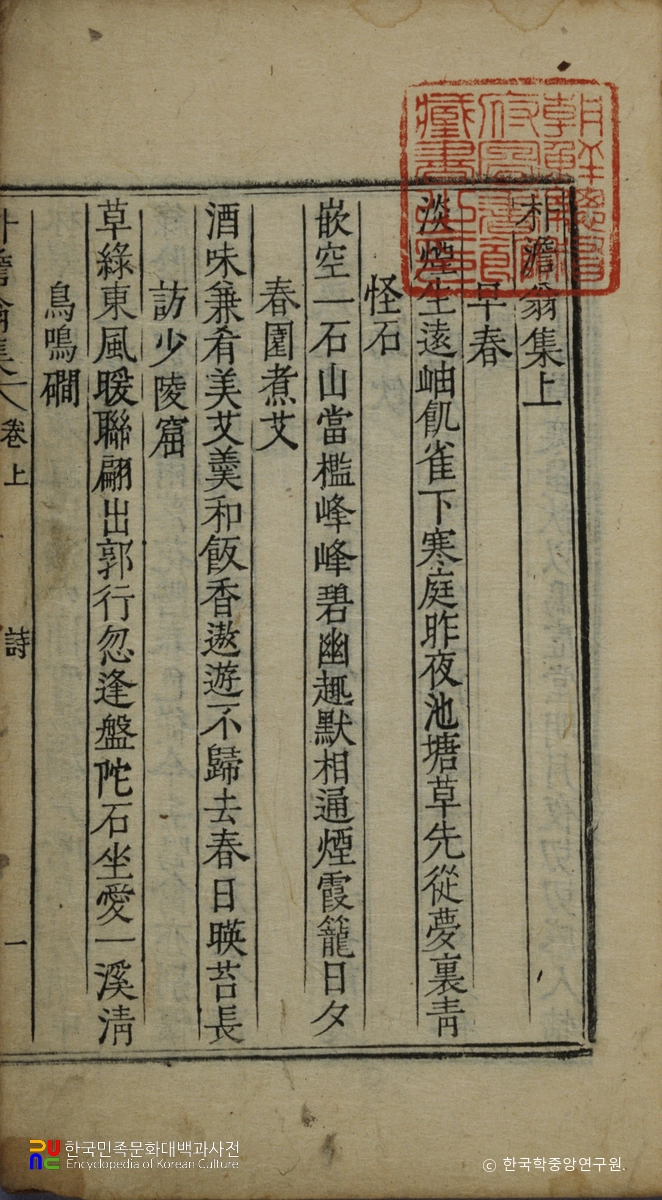 朝鮮總督
府圖書館
藏書之印
朴澹翁集上
早春
淡煙生遠岫飢雀下寒庭昨夜池塘草先從夢裏靑
怪石
嵌空一石山當檻峰峰碧幽趣默相通煙霞籠日夕
春園煮艾
酒味兼肴美艾羹和飯香遨遊不歸去春日暎苔長
訪少陵窟
草綠東風暖聯翩出郭行忽逢盤陀石坐愛一溪淸
鳥鳴磵
卷上 詩 一
한국민족문화대백과사전
Encyclopedia of Korean Culture
© 한국학중앙연구원.